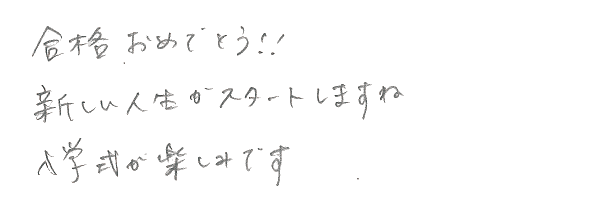 合格おめでとう!!
新しい人生がスタートしますね
入学式が楽しみです